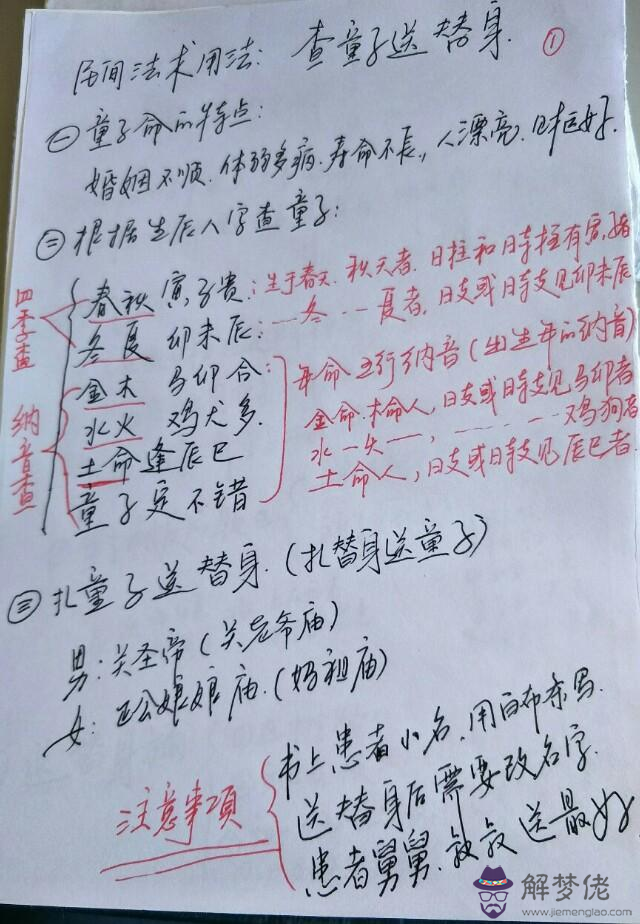 民间法术用法: 查童子送替身. ①
㊀童子命的特点:
婚姻不顺. 体弱多病. 寿命不长, 人漂亮.
㊁根据生辰八字查童子:
四季查
春秋 寅子贵: 生于春天. 秋天者. 日柱和时柱有寅, 子者
冬夏 卯未辰: 一冬一夏者, 日支或时支见卯未辰
纳音查
金木 马卯合: 年命五行纳音 (出生年的纳音)
水火 鸡犬多. 金命. 木命人, 日支或时支见马卯者
土命逢辰巳 水一火一, 鸡狗者
童子定不错 土命人, 日支或时支见辰巳者.
㊂扎童子送替身. (扎替身送童子)
男: 关圣帝 (关老爷庙)
女: 娘娘庙. (妈祖庙)
注意事項
书上患者小名. 用白布条写.
送替身后需要改名字.
患者舅舅. 叔叔送最好
解梦佬
www.jiemenglao.com